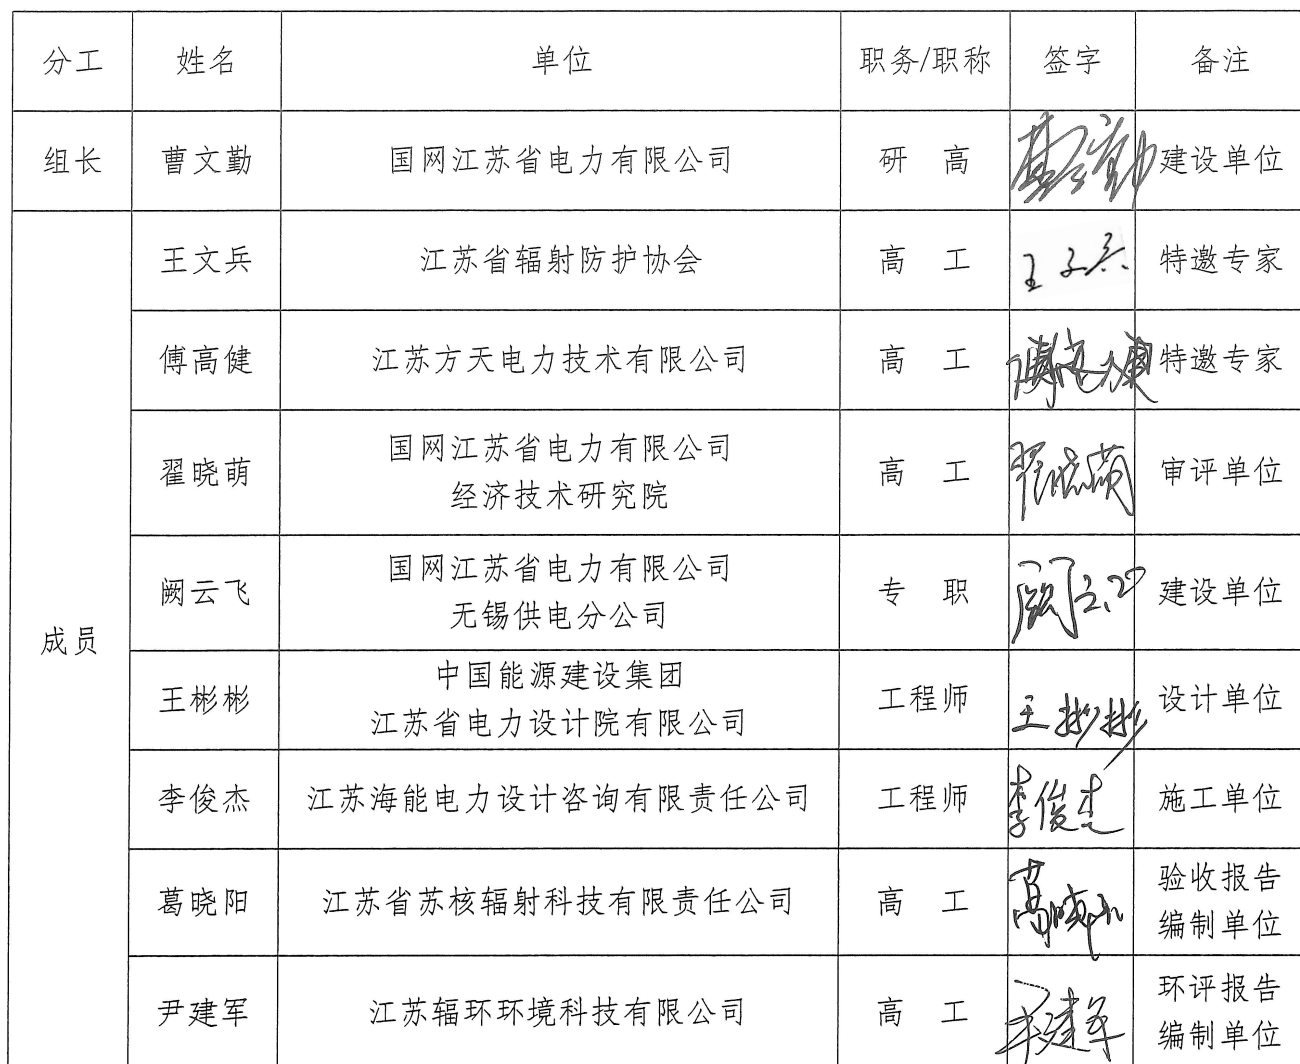 分工 姓名 单位 职务/职称 签字 备注
组长 曹文勤 国网江苏省电力有限公司 研 高 曹文勤 建设单位
成员
王文兵 江苏省辐射防护协会 高 工 王文兵 特邀专家
傅高健 江苏方天电力技术有限公司 高 工 傅高健 特邀专家
翟晓萌 国网江苏省电力有限公司
经济技术研究院 高 工 翟晓萌 审评单位
阙云飞 国网江苏省电力有限公司
无锡供电分公司 专 职 阙云飞 建设单位
王彬彬 中国能源建设集团
江苏省电力设计院有限公司 工程师 王彬彬 设计单位
李俊杰 江苏海能电力设计咨询有限责任公司 工程师 李俊杰 施工单位
葛晓阳 江苏省苏核辐射科技有限责任公司 高 工 葛晓阳 验收报告
编制单位
尹建军 江苏辐环环境科技有限公司 高 工 尹建军 环评报告
编制单位